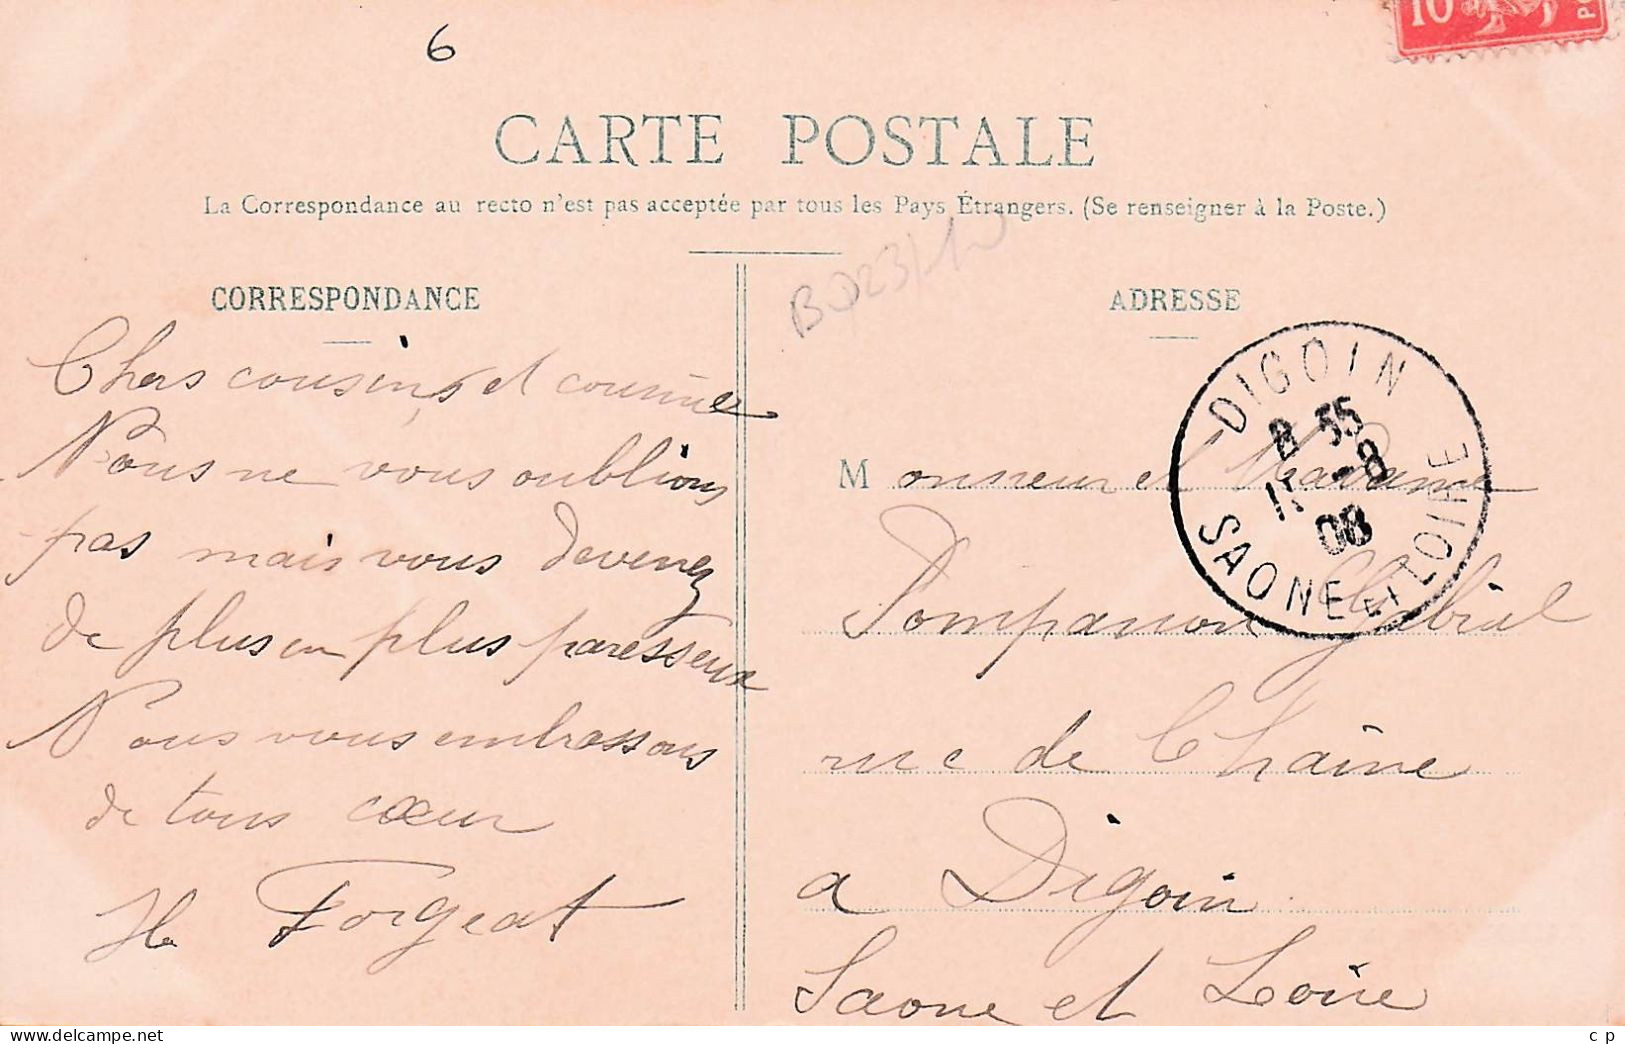 6
10
CARTE POSTALE
La Correspondance au recto n'est pas acceptée par tous les Pays Étrangers. (Se renseigner à la Poste.)
CORRESPONDANCE
Chers cousins et cousine
Nous ne vous oublions
pas mais vous devenez
de plus en plus paresseux
Nous vous embrassons
de tous cœur
Forgeat
ADRESSE
DIGOIN
8 55
11 -8
08
SAONE et LOIRE
Monsieur et Madame
Pomparion Gabriel
rue de Chaine
a Digoin
Saone et Loire
c p